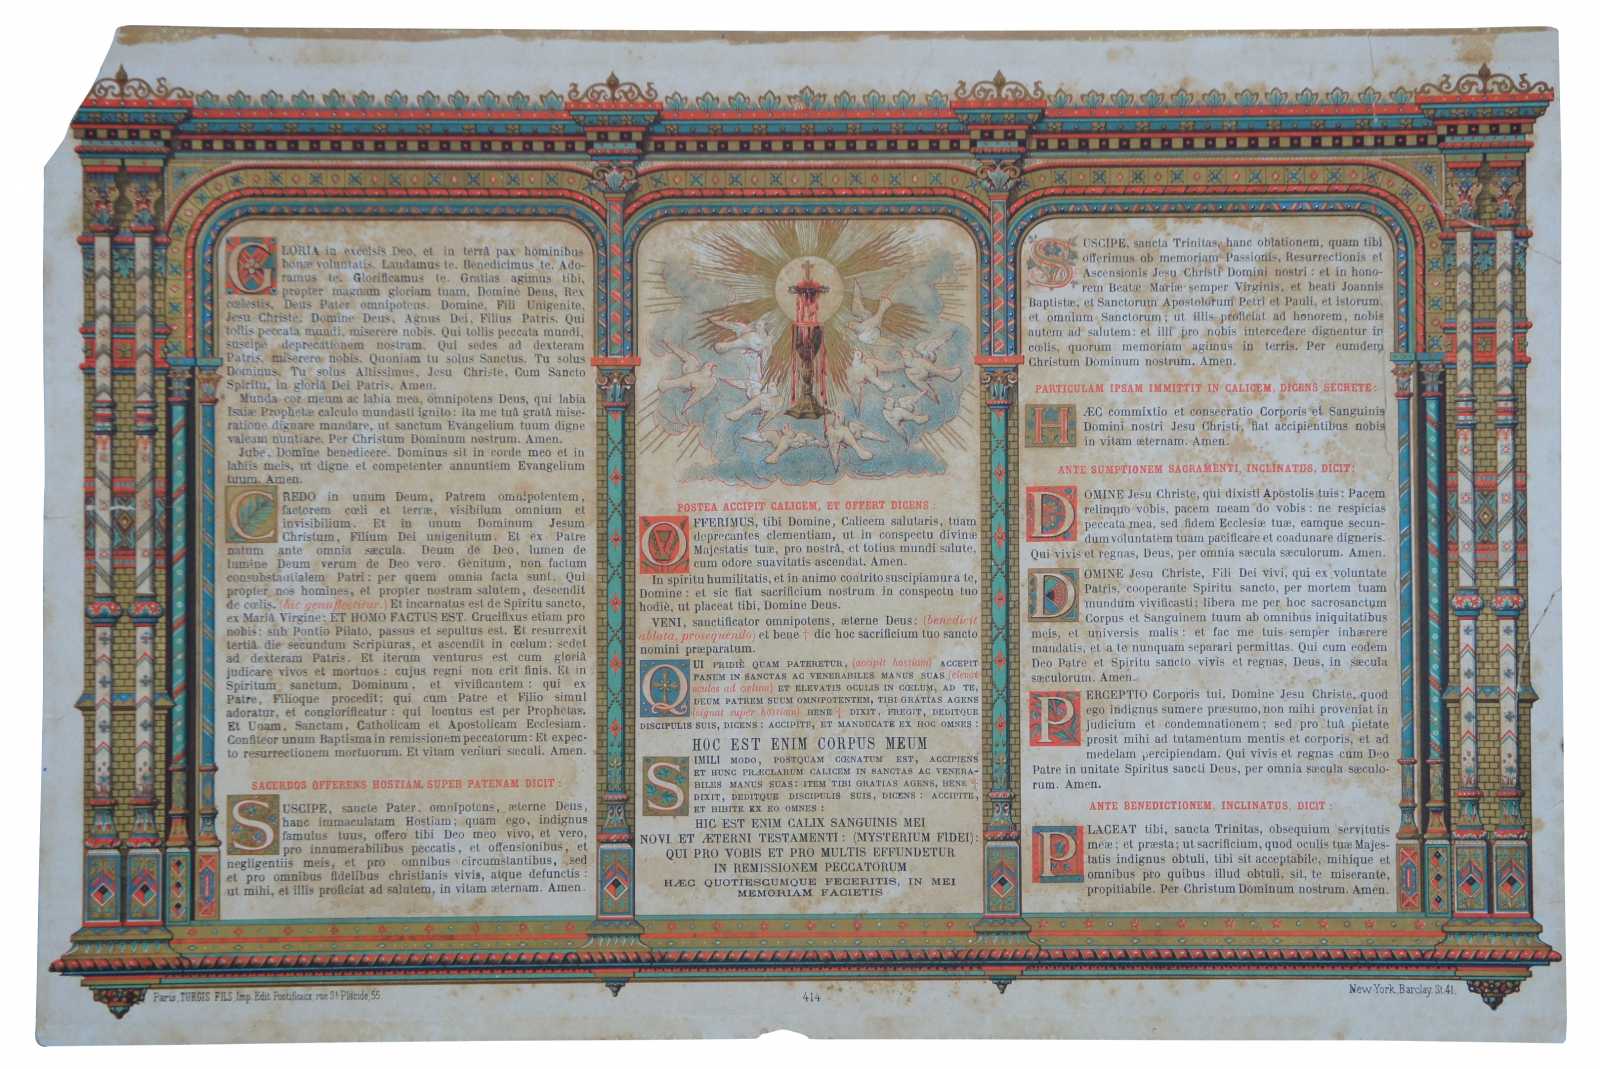 GLORIA in excelsis Deo, et in terrâ pax hominibus
bonæ voluntatis. Laudamus te. Benedicimus te. Ado-
ramus te. Glorificamus te. Gratias agimus tibi,
propter magnam gloriam tuam, Domine Deus, Rex
cœlestis, Deus Pater omnipotens. Domine, Fili Unigenite,
Jesu Christe. Domine Deus, Agnus Dei, Filius Patris. Qui
tollis peccata mundi, miserere nobis. Qui tollis peccata mundi,
suscipe deprecationem nostram. Qui sedes ad dexteram
Patris, miserere nobis. Quoniam tu solus Sanctus. Tu solus
Dominus. Tu solus Altissimus, Jesu Christe, Cum Sancto
Spiritu, in gloriâ Dei Patris. Amen.
Munda cor meum ac labia mea, omnipotens Deus, qui labia
Isaiæ Prophetæ calculo mundasti ignito: ita me tuâ gratâ mise-
ratione dignare mundare, ut sanctum Evangelium tuum digne
valeam nuntiare. Per Christum Dominum nostrum. Amen.
Jube, Domine benedicere. Dominus sit in corde meo et in
labiis meis, ut digne et competenter annuntiem Evangelium
tuum. Amen.
CREDO in unum Deum, Patrem omnipotentem,
factorem cœli et terræ, visibilum omnium et
invisibilium. Et in unum Dominum Jesum
Christum, Filium Dei unigenitum. Et ex Patre
natum ante omnia sæcula. Deum de Deo, lumen de
lumine Deum verum de Deo vero. Genitum, non factum
consubstantialem Patri: per quem omnia facta sunt. Qui
propter nos homines, et propter nostram salutem, descendit
de cœlis. (hic genuflectitur.) Et incarnatus est de Spiritu sancto,
ex Mariâ Virgine: ET HOMO FACTUS EST. Crucifixus etiam pro
nobis: sub Pontio Pilato, passus et sepultus est. Et resurrexit
tertiâ die secundum Scripturas, et ascendit in cœlum: sedet
ad dexteram Patris. Et iterum venturus est cum gloriâ
judicare vivos et mortuos: cujus regni non erit finis. Et in
Spiritum sanctum, Dominum, et vivificantem: qui ex
Patre, Filioque procedit; qui cum Patre et Filio simul
adoratur, et conglorificatur: qui locutus est per Prophetas.
Et Unam, Sanctam, Catholicam et Apostolicam Ecclesiam.
Confiteor unum Baptisma in remissionem peccatorum: Et expec-
to resurrectionem mortuorum. Et vitam venturi sæculi. Amen.
SACERDOS OFFERENS HOSTIAM, SUPER PATENAM DICIT:
SUSCIPE, sancte Pater, omnipotens, æterne Deus,
hanc immaculatam Hostiam; quam ego, indignus
famulus tuus, offero tibi Deo meo vivo, et vero,
pro innumerabilibus peccatis, et offensionibus, et
negligentiis meis, et pro omnibus circumstantibus, sed
et pro omnibus fidelibus christianis vivis, atque defunctis:
ut mihi, et illis proficiat ad salutem, in vitam æternam. Amen.
POSTEA ACCIPIT CALICEM, ET OFFERT DICENS:
OFFERIMUS, tibi Domine, Calicem salutaris, tuam
deprecantes clementiam, ut in conspectu divinæ
Majestatis tuæ, pro nostrâ, et totius mundi salute,
cum odore suavitatis ascendat. Amen.
In spiritu humilitatis, et in animo contrito suscipiamur a te,
Domine: et sic fiat sacrificium nostrum in conspectu tuo
hodiè, ut placeat tibi, Domine Deus.
VENI, sanctificator omnipotens, æterne Deus: (benedicit
oblata, prosequendo) et bene † dic hoc sacrificium tuo sancto
nomini præparatum.
QUI PRIDIE QUAM PATERETUR, (accipit hostiam) ACCEPIT
PANEM IN SANCTAS AC VENERABILES MANUS SUAS (elevat
oculos ad cœlum) ET ELEVATIS OCULIS IN CŒLUM, AD TE,
DEUM PATREM SUUM OMNIPOTENTEM, TIBI GRATIAS AGENS
(signat super hostiam) BENE † DIXIT, FREGIT, DEDITQUE
DISCIPULIS SUIS, DICENS: ACCIPITE, ET MANDUCATE EX HOC OMNES:
HOC EST ENIM CORPUS MEUM
SIMILI MODO, POSTQUAM CŒNATUM EST, ACCIPIENS
ET HUNC PRÆCLARUM CALICEM IN SANCTAS AC VENERA-
BILES MANUS SUAS: ITEM TIBI GRATIAS AGENS, BENE †
DIXIT, DEDITQUE DISCIPULIS SUIS, DICENS: ACCIPITE,
ET BIBITE EX EO OMNES:
HIC EST ENIM CALIX SANGUINIS MEI
NOVI ET ÆTERNI TESTAMENTI: (MYSTERIUM FIDEI):
QUI PRO VOBIS ET PRO MULTIS EFFUNDETUR
IN REMISSIONEM PECCATORUM
HÆC QUOTIESCUMQUE FECERITIS, IN MEI
MEMORIAM FACIETIS
SUSCIPE, sancta Trinitas, hanc oblationem, quam tibi
offerimus ob memoriam Passionis, Resurrectionis et
Ascensionis Jesu Christi Domini nostri: et in hono-
rem Beatæ Mariæ semper Virginis, et beati Joannis
Baptistæ, et Sanctorum Apostolorum Petri et Pauli, et istorum,
et omnium Sanctorum; ut illis proficiat ad honorem, nobis
autem ad salutem: et illi pro nobis intercedere dignentur in
cœlis, quorum memoriam agimus in terris. Per eumdem
Christum Dominum nostrum. Amen.
PARTICULAM IPSAM IMMITTIT IN CALICEM, DICENS SECRETE:
HÆC commixtio et consecratio Corporis et Sanguinis
Domini nostri Jesu Christi, fiat accipientibus nobis
in vitam æternam. Amen.
ANTE SUMPTIONEM SACRAMENTI, INCLINATUS, DICIT:
DOMINE Jesu Christe, qui dixisti Apostolis tuis: Pacem
relinquo vobis, pacem meam do vobis: ne respicias
peccata mea, sed fidem Ecclesiæ tuæ, eamque secun-
dum voluntatem tuam pacificare et coadunare digneris.
Qui vivis et regnas, Deus, per omnia sæcula sæculorum. Amen.
DOMINE Jesu Christe, Fili Dei vivi, qui ex voluntate
Patris, cooperante Spiritu sancto, per mortem tuam
mundum vivificasti: libera me per hoc sacrosanctum
Corpus et Sanguinem tuum ab omnibus iniquitatibus
meis, et universis malis: et fac me tuis semper inhærere
mandatis, et a te nunquam separari permittas. Qui cum eodem
Deo Patre et Spiritu sancto vivis et regnas, Deus, in sæcula
sæculorum. Amen.
PERCEPTIO Corporis tui, Domine Jesu Christe, quod
ego indignus sumere præsumo, non mihi proveniat in
judicium et condemnationem; sed pro tuâ pietate
prosit mihi ad tutamentum mentis et corporis, et ad
medelam percipiendam. Qui vivis et regnas cum Deo
Patre in unitate Spiritus sancti Deus, per omnia sæcula sæculo-
rum. Amen.
ANTE BENEDICTIONEM, INCLINATUS, DICIT:
PLACEAT tibi, sancta Trinitas, obsequium servitutis
meæ; et præsta; ut sacrificium, quod oculis tuæ Majes-
tatis indignus obtuli, tibi sit acceptabile, mihique et
omnibus pro quibus illud obtuli, sit, te miserante,
propitiabile. Per Christum Dominum nostrum. Amen.
Paris, TURGIS FILS, Imp. Edit. Pontificaux rue St Placide, 55
414
New-York, Barclay. St. 41.